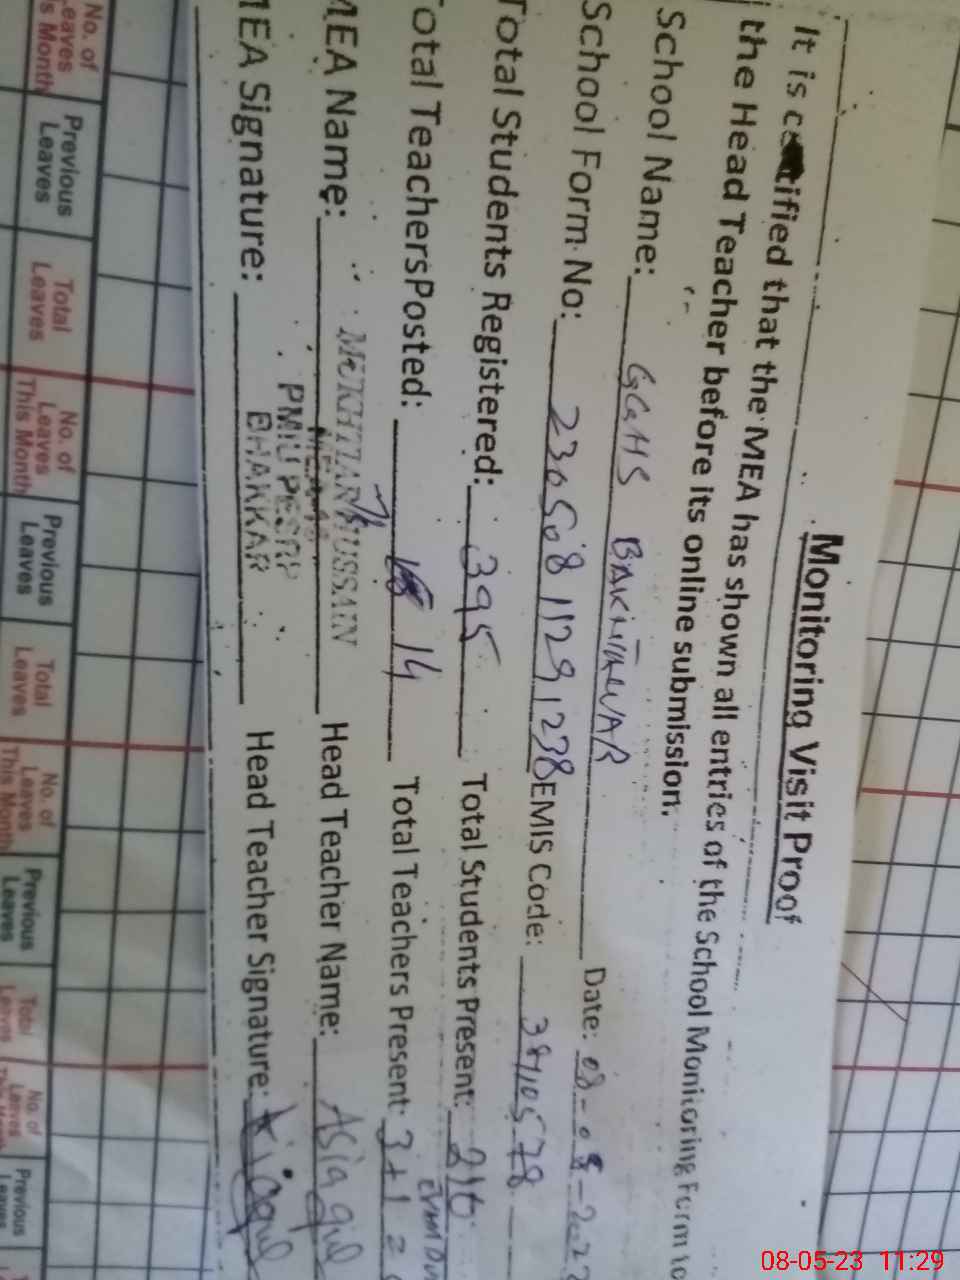 Monitoring Visit Proof
It is certified that the MEA has shown all entries of the School Monitoring Form to
the Head Teacher before its online submission.
School Name: GGHS BAKHTAWAR Date: 08-
School Form No: EMIS Code:
Total Students Registered: 395 Total Students Present: 216
Total Teachers Posted: 14 Total Teachers Present: 3+1 =
MEA Name: MUKHTIAR HUSSAIN Head Teacher Name: Asia gul
MEA Signature: Head Teacher Signature:
PMIU PESRP
BHAKKAR
No. of Leaves This Month
Previous Leaves
Total Leaves
No. of Leaves This Month
Previous Leaves
Total Leaves
No. of Leaves This Month
Previous Leaves
Total Leaves
No. of Leaves
Previous Leaves
08-05-23 11:29